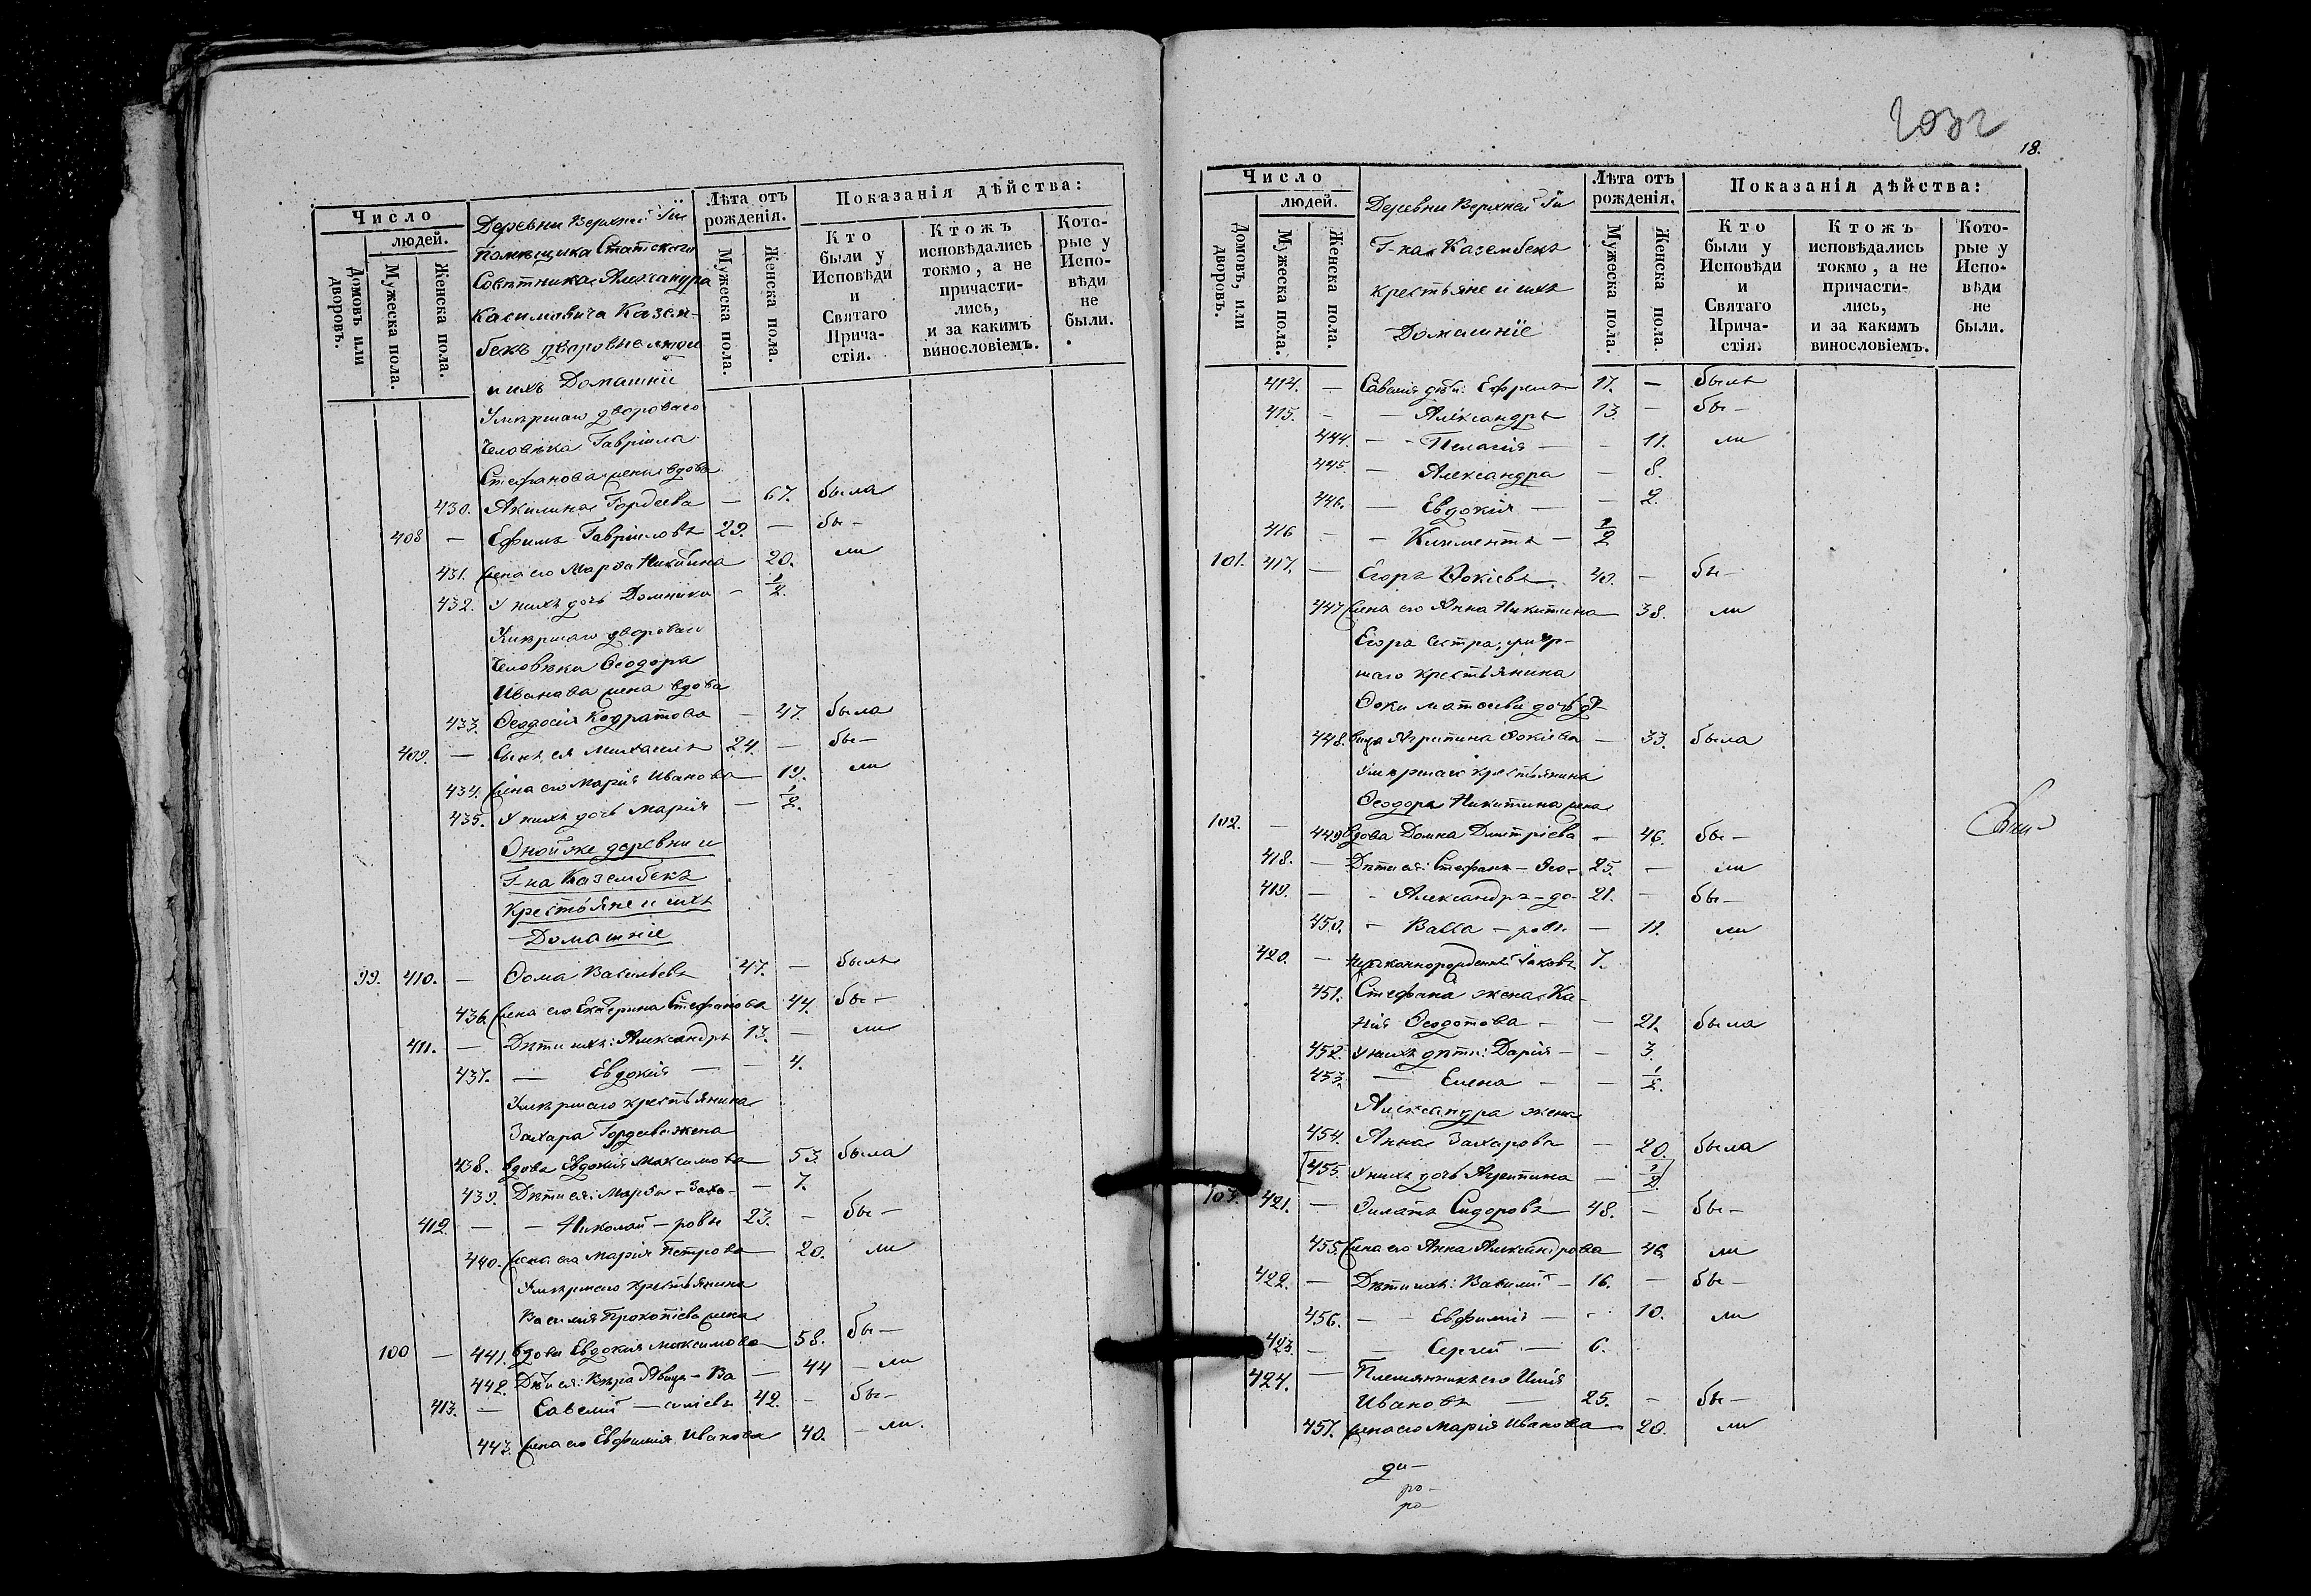 Число
людей.
Домовъ или дворовъ.
Мужеска пола.
Женска пола.
Деревни Верхней
помѣщика Статскаго
Совѣтника Александра
Касимовича Казем-
бекъ дворовые люди
и ихъ Домашніи
Лѣта отъ рожденія.
Мужеска пола.
Женска пола.
Показанія дѣйства:
Кто были у Исповѣди и Святаго Прича-стія.
Ктожъ исповѣдались токмо, а не причасти-лись, и за какимъ винословіемъ.
Кото-рые у Испо-вѣди не были.
Умершаго двороваго
человѣка Гавріила
Стефанова жена вдова
430. Акилина Гордеева — 67. была
408 — Ефимъ Гавриловъ 29. — бы-
431. жена его Марѳа Никитина 20. ли
432. У нихъ дочь Домника — 1/2.
Умершаго двороваго
человѣка Ѳеодора
Иванова жена вдова
433. Ѳеодосія Кодратова — 47. была
409. — Сынъ ея Михаилъ 24. — бы-
434. жена его Марія Иванова 19. ли
435. У нихъ дочь Марія — 1/2.
Оной же деревни и
Г-на Казембекъ
Крестьяне и ихъ
Домашніе
99. 410. — Ѳома Васильевъ 47. — былъ
436. жена его Екатерина Стефанова 44. бы-
411. — Дѣти ихъ: Александръ 13. — ли
437. — Евдокія — — 4.
Умершаго крестьянина
Захара Гордеева жена
438. вдова Евдокія Максимова 53. была
439. Дѣти ея: Марѳа - Заха- — 7.
412. — — Николай - ровы 23. — бы-
440. жена его Марія Петрова 20. ли
Умершаго крестьянина
Василія Прокопіева жена
100 — 441. вдова Евдокія Максимова 58. бы-
442. Дѣти ея: Вѣра дѣвица - Ва — 44 — ли
413. — Савелій — силіевъ 42. — бы-
443. жена его Евфимія Иванова 40. — ли.
18.
Число
людей.
Домовъ, или дворовъ.
Мужеска пола.
Женска пола.
Деревни Верхней
Г-на Казембекъ
крестьяне и ихъ
Домашніе
Лѣта отъ рожденія.
Мужеска пола.
Женска пола.
Показанія дѣйства:
Кто были у Исповѣди и Святаго Прича-стія.
Ктожъ исповѣдались токмо, а не причасти-лись, и за какимъ винословіемъ.
Кото-рые у Испо-вѣди не были.
414. — Савелія дѣти: Ефремъ 17. — былъ
415. — — Александръ 13. — бы-
444. — — Пелагія — — 11. ли
445. — Александра — 8.
446. — Евдокія — — 2.
416 — — Климентъ — 1/2
101. 417. — Егоръ Ѳокіевъ 40. — бы-
447 жена его Анна Никитина 38. ли
Егора сестра, умер-
шаго крестьянина
Ѳоки Матвеева дочь дѣ-
448. вица Агрипина Ѳокіева — 33. была
Умершаго крестьянина
Ѳеодора Никитина жена
102. — 449 вдова Домна Дмитріева — 46. бы-
418. — Дѣти ея: Стефанъ - Ѳео- 25. — ли
419. — - Александръ - до- 21. — бы-
450. — Васса - ровы — 11. ли
420. — Незаконнорожденный Іаковъ 7.
451. Стефана жена Ксе-
нія Ѳеодотова — — 21. была
452. У нихъ дѣти: Дарія — — 3.
453. — Елена — — 1/2.
Александра жена
454. Анна Захарова — 20. была
[455. У нихъ дочь Агрипина — 1/2]
103. 421. — Филатъ Сидоровъ 48. — бы-
455. жена его Анна Александрова 46. ли
422. — Дѣти ихъ: Василій — 16. — бы-
456. — — Евфимія — — 10. ли
423. — — Сергій — 6.
424. — Племянникъ его Илія
Ивановъ — 25. — бы-
457. жена его Марія Иванова 20. ли
ди-
ро-
ро-